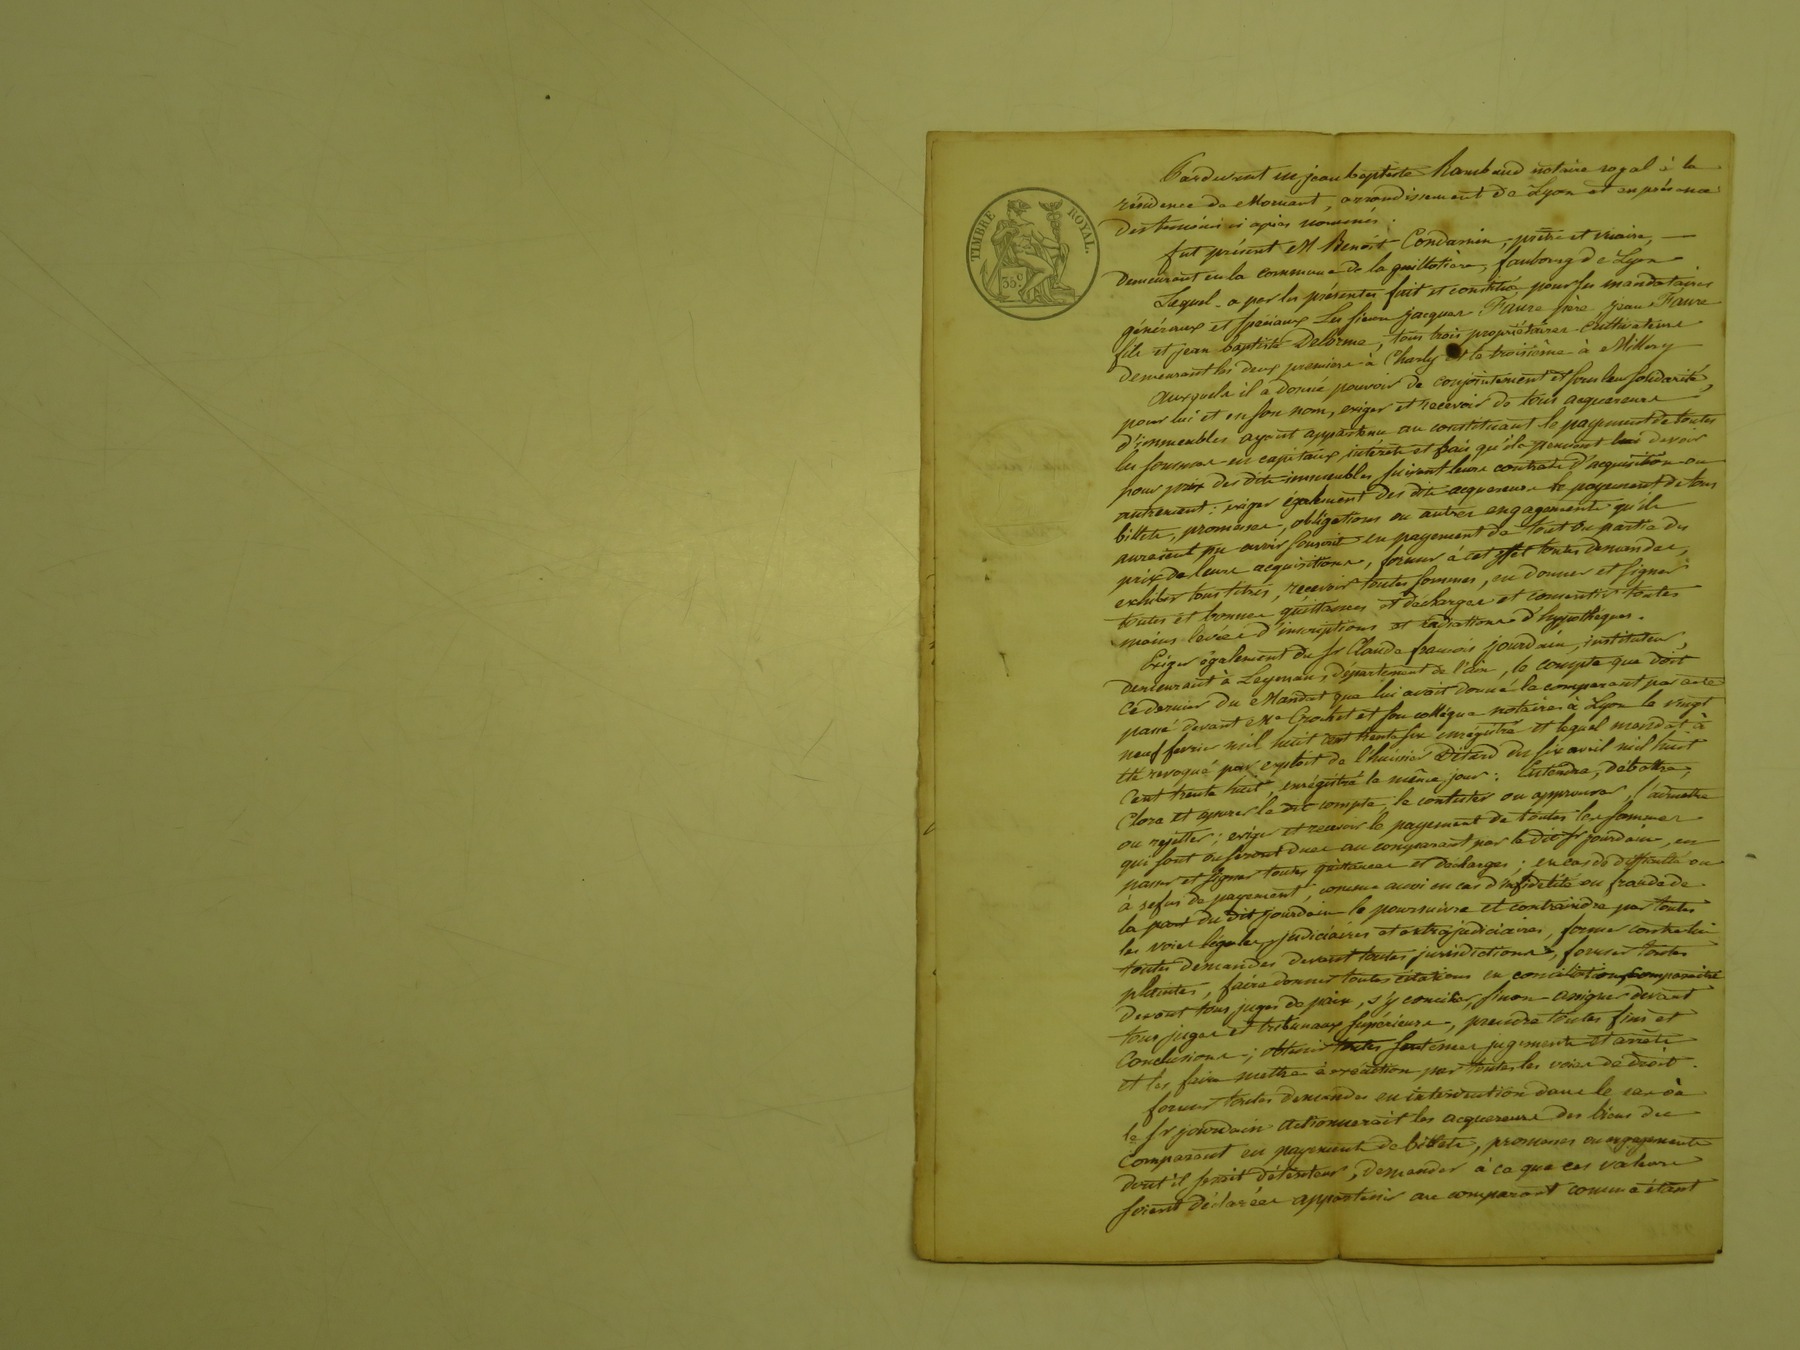 TIMBRE ROYAL
35 c
Pardevant me jean baptiste Rambaud notaire royal à la
résidence de Mornant, arrondissement de Lyon et en présence
des temoins ci après nommés.
fut présent M Benoit Condamin, prêtre et vicaire,
Demeurant en la commune de la guillotière, faubourg de Lyon
Lequel a par les présentes fait et constitué pour ses mandataires
généraux et spéciaux Les sieurs jacques Faure père, jean Faure
fils et jean baptiste Delorme, tous trois propriétaires cultivateurs
demeurant les deux premiers à Charly et le troisième à Millery
Auxquels il a donné pouvoir de conjointement et sous leur solidarité,
pour lui et en son nom, exiger et recevoir de tous acquereurs
d'immeubles ayant appartenu au constituant le payement de toutes
les sommes en capitaux intérêts et frais qu'ils peuvent lui devoir
pour prix des dits immeubles suivant leurs contrats d'acquisition ou
autrement : exiger également des dits acquereurs le payement de tous
billets, promesses, obligations ou autres engagements qu'ils
auraient pu avoir souscrit en payement de tout ou partie du
prix de leurs acquisitions, former à cet effet toutes demandes,
exhiber tous titres, recevoir toutes sommes, en donner et signer
toutes et bonnes quittances et décharges et consentir toutes
mains levées d'inscriptions et radiations d'hypothèques.
Exiger également du sr Claude francois jourdain, instituteur,
demeurant à Leyssard, département de l'ain, le compte que doit
ce dernier du Mandat que lui avait donné le comparant par acte
passé devant Me Crochet et son collégue notaires à Lyon le vingt
neuf fevrier mil huit cent trente six enregistré et lequel mandat à
été revoqué par exploit de l'huissier Ditard du six avril mil huit
Cent trente huit, enregistré le même jour : Entendre, débattre,
Clore et apurer le dit compte, le contester ou approuver, l'admettre
ou rejetter ; exiger et recevoir le payement de toutes les sommes
qui sont ou seront dues au comparant par le dit sr jourdain, en
passer et signer toutes quittances et décharges ; en cas de difficulté ou
à refus de payement, comme aussi en cas d'infidélité ou fraude de
la part du dit jourdain le poursuivre et contraindre par toutes
les voies légales, judiciaires et extrajudiciaires, former contre lui
toutes demandes devant toutes jurisdictions, former toutes
plaintes, faire donner toutes citations en conciliation, comparaître
devant tous juges de paix, s'y concilier, sinon assigner devant
tous juges et tribunaux supérieurs, prendre toutes fins et
Conclusions ; obtenir toutes sentences jugements et arrêts
et les faire mettre à exécution par toutes les voies de droit.
former toutes demandes en intervention dans le cas où
le sr jourdain actionnerait les acquereurs des biens du
Comparant en payement de billets, promesses ou engagements
dont il serait détenteur, demander à ce que ces valeurs
soient déclarées appartenir au comparant comme étant